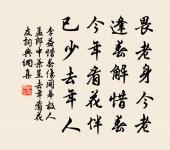 畏老身今老
逢春解惜春
今年看花伴
已少去年人
李益惜春傷同幕故人
孟郎中兼呈去年看花
友詞典網集